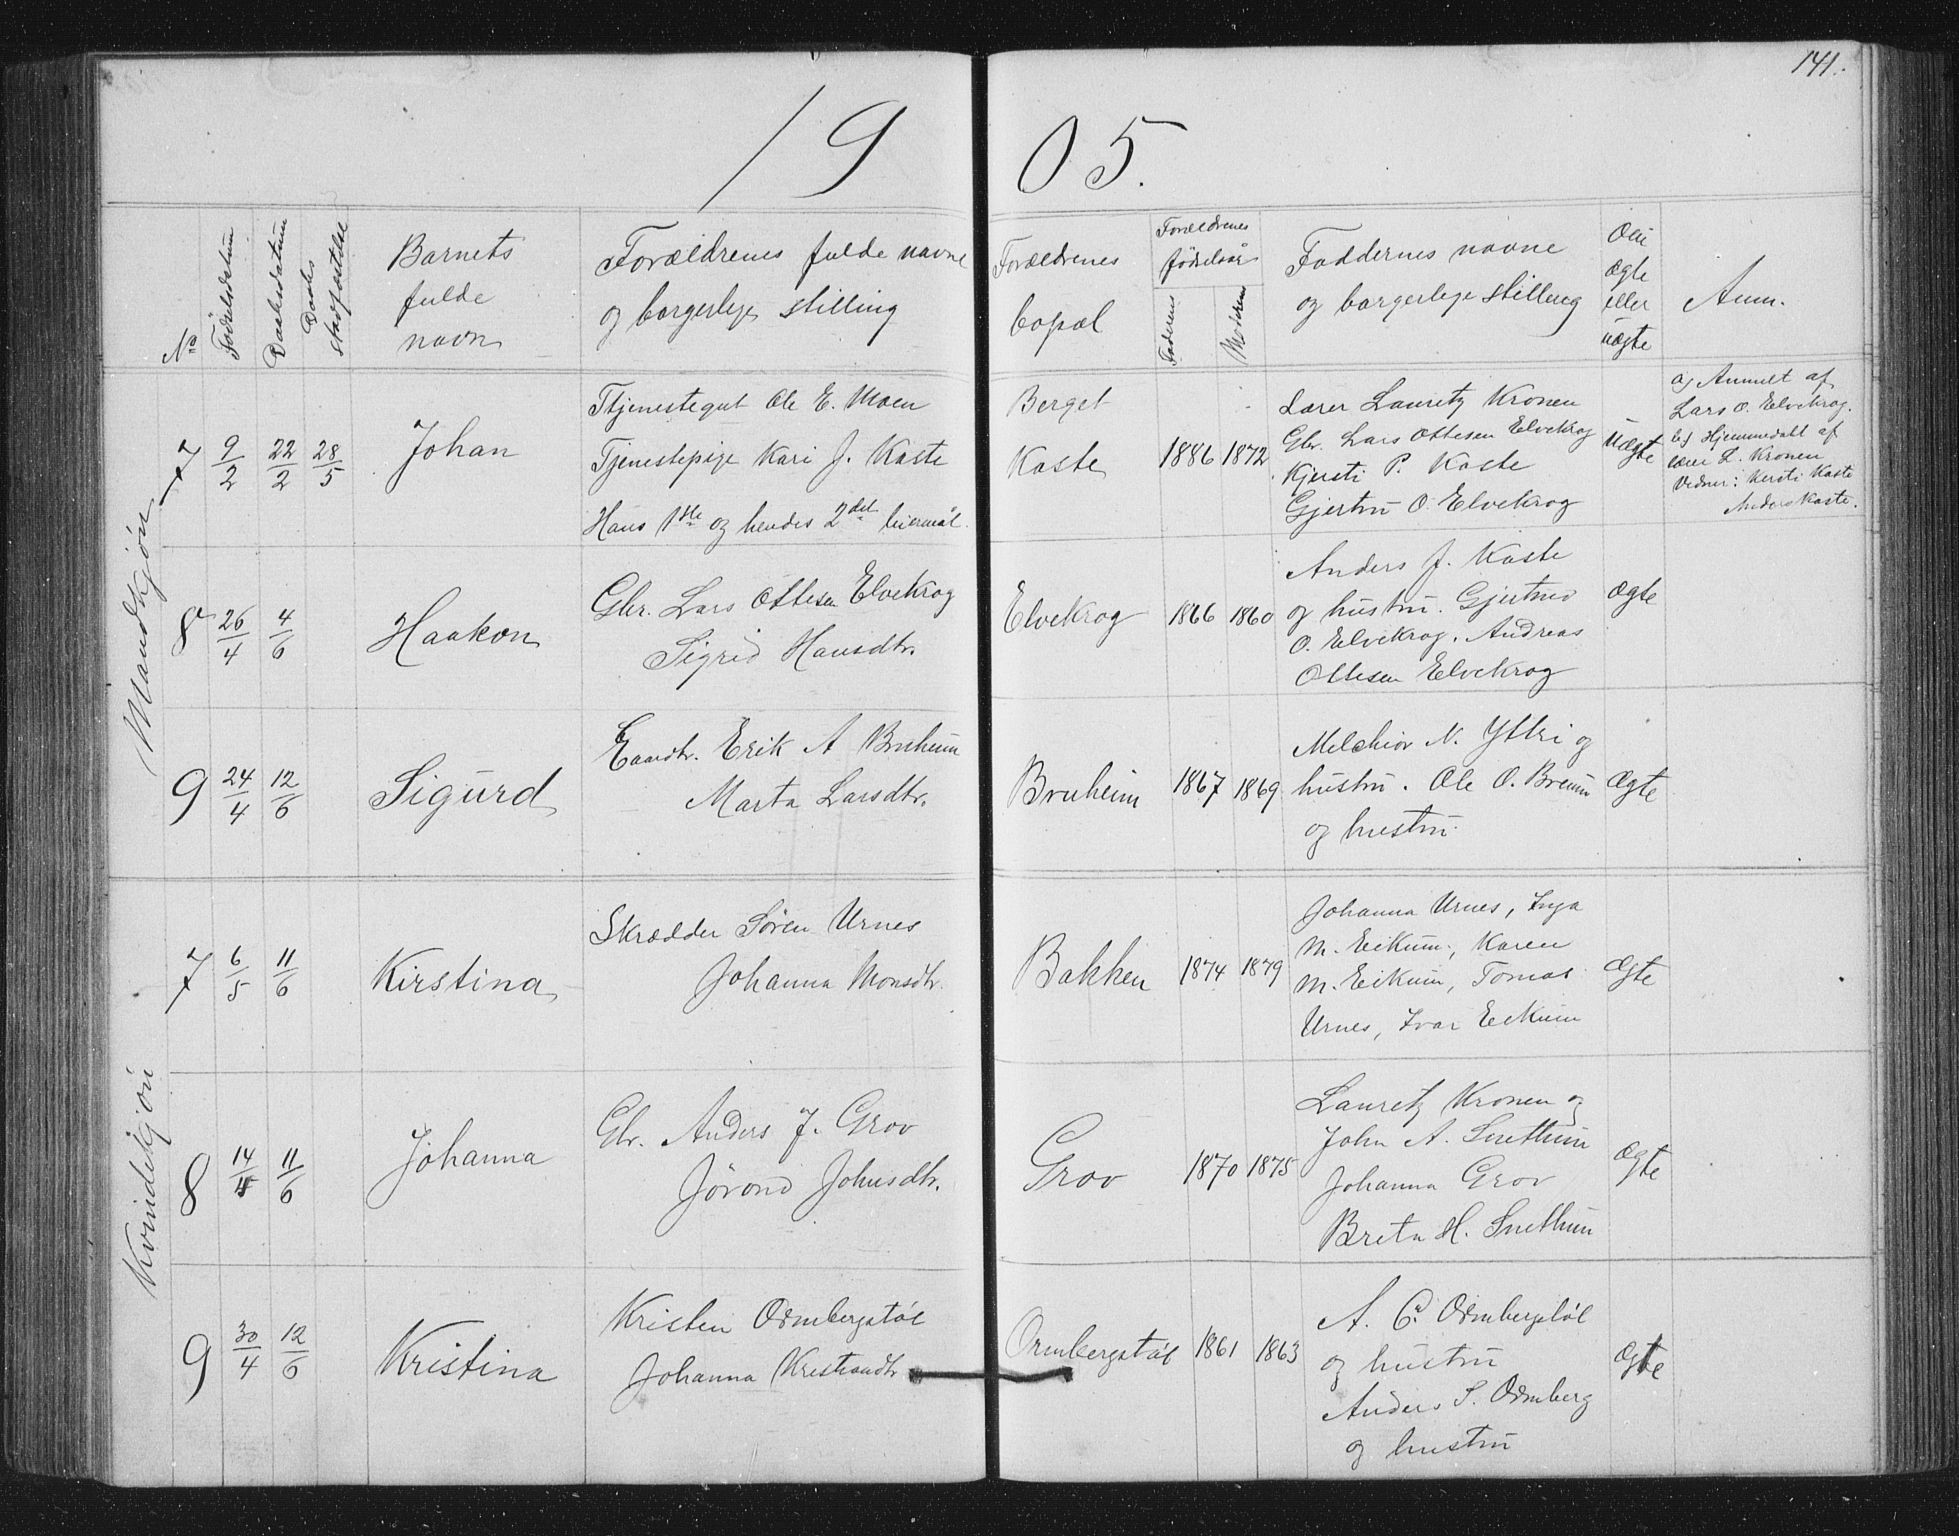 141.
1905.
No
Fødselsdatum
Daabsdatum
Daabs stadfæstelse
Barnets fulde navn
Forældrenes fulde navne og borgerlige stilling
Forældrenes bopæl
Forældrenes fødselsaar
Faderens
Moderens
Faddernes navne og borgerlige stilling
Om ægte eller uægte
Anm.
Mandkjøn
7 9/2 22/2 28/5 Johan
Tjenestegut Ole E. Moen
Tjenestepige Kari J. Kaste
Hans 1ste og hendes 2det leiermål.
Berget
Kaste 1886 1872
Lærer Lauretz Kronen
Gbr. Lars Ottesen Elvekrog
Kjersti P. Kaste
Gjertru O. Elvekrog
Uægte
a) Anmelt af
Lars O. Elvekrog.
b) Hjemmedøbt af
lærer L. Kronen
Vidner: Kersti Kaste
Anders Kaste.
8 26/4 4/6 Haakon
Gbr. Lars Ottesen Elvekrog
Sigrid Hansdtr.
Elvekrog 1866 1860
Anders J. Kaste
og hustru. Gjertrud
O. Elvekrog. Andreas
Ottesen Elvekrog
Ægte
9 24/4 12/6 Sigurd
Erik A Bruheim
Marta Larsdtr.
Bruheim 1867 1869
Melchior N. Yttri og
hustru. Ole O. Breum
og hustru.
Ægte
Kvindekjøn
7 6/5 11/6 Kirstina
Skrædder Søren Urnes
Johanna Monsdtr.
Bakken 1874 1879
Johanna Urnes, Inga
M. Eikum, Karen
M. Eikum, Tomas
Urnes, Ivar Eikum
Ægte
8 14/4 11/6 Johanna
Gbr. Anders J. Grov
Jørond Johnsdtr.
Grov 1870 1875
Lauretz Kronen og
John A. Snethun
Johanna Grov
Breta H. Snethun
Ægte
9 30/4 12/6 Kristina
Kristen Ormbergstøl
Johanna Kristiandtr
Ormbergstøl 1861 1863
A. C. Ormbergstøl
og hustru
Anders S. Ormberg
og hustru
Ægte